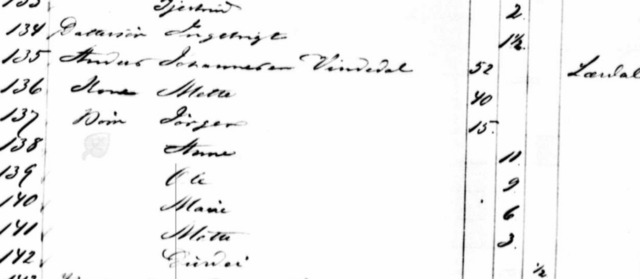 133 Gjertrud 2
134 Datterson Ingebrigt 1½
135 Anders Johannesen Vindedal 52 Lærdal
136 Kone Mette 40
137 Børn Jørgen 15
138 Anne 11
139 Ole 9
140 Marie 6
141 Mette 3
142 Giørdei ½